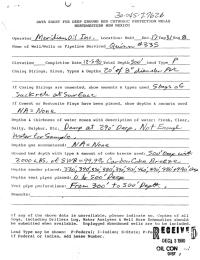 30-045-27626
DATA SHEET FOR DEEP GROUND BED CATHODIC PROTECTION WELLS
NORTHWESTERN NEW MEXICO
Operator Meridian Oil Inc. Location: Unit
Name of Well/Wells or Pipeline Serviced Quinn #335
Elevation Completion Date 12-2-90 Total Depth 500' Land Type P
Casing Strings, Sizes, Types & Depths 20' of 8" diameter PVC
If Casing Strings are cemented, show amounts & types used 5 bags of
Sackrete at Surface
If Cement or Bentonite Plugs have been placed, show depths & amounts used
N/A = None
Depths & thickness of water zones with description of water: Fresh, Clear,
Salty, Sulphur, Etc. Damp at 290' Deep, Not Enough
Water for Sample
Depths gas encountered: N/A = None
Ground bed depth with type & amount of coke breeze used: 500' Deep with
Depths anodes placed:
Depths vent pipes placed: 0 to 500' Deep
Vent pipe perforations: From 300' to 500' Depth.
Remarks:
If any of the above data is unavailable, please indicate so. Copies of all
logs, including Drillers Log, Water Analyses & Well Bore Schematics should
be submitted when available. Unplugged abandoned wells are to be included.
Land Type may be shown: F-Federal; I-Indian; S-State; P-Fee
If Federal or Indian, add Lease Number.
RECEIVED
DEC 3 1990
OIL CON. DIV.